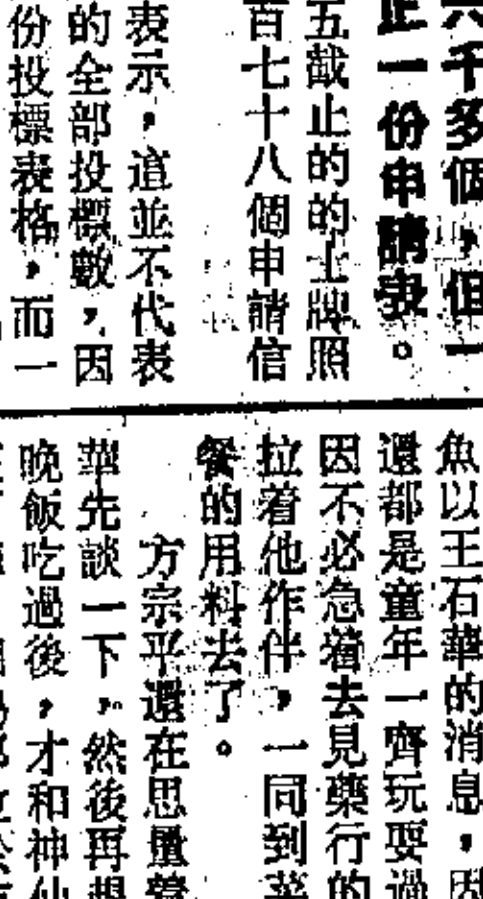 六千多個，但一
止一份申請表。
五截止的的士牌照
百七十八個申請信
表示，道並不代表
的全部投標數，因
份投標表格，而一
魚以王石華的消息，因
還都是童年一齊玩耍過
因不必急着去見藥行的
拉着他作伴，一同到菜
餐的用料去了。
方宗平還在思量
華先談一下，然後再
晚飯吃過後，才和神仙